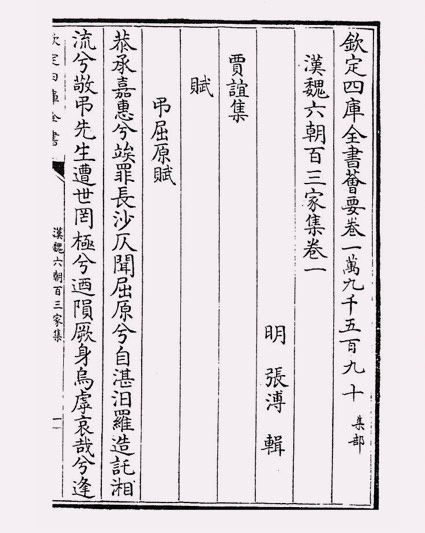 欽定四庫全書薈要卷一萬九千五百九十 集部
漢魏六朝百三家集卷一
明 張溥 輯
賈誼集
賦
弔屈原賦
恭承嘉惠兮竢罪長沙仄聞屈原兮自湛汨羅造託湘
流兮敬弔先生遭世罔極兮迺隕厥身烏虖哀哉兮逢
欽定四庫全書
漢魏六朝百三家集
一